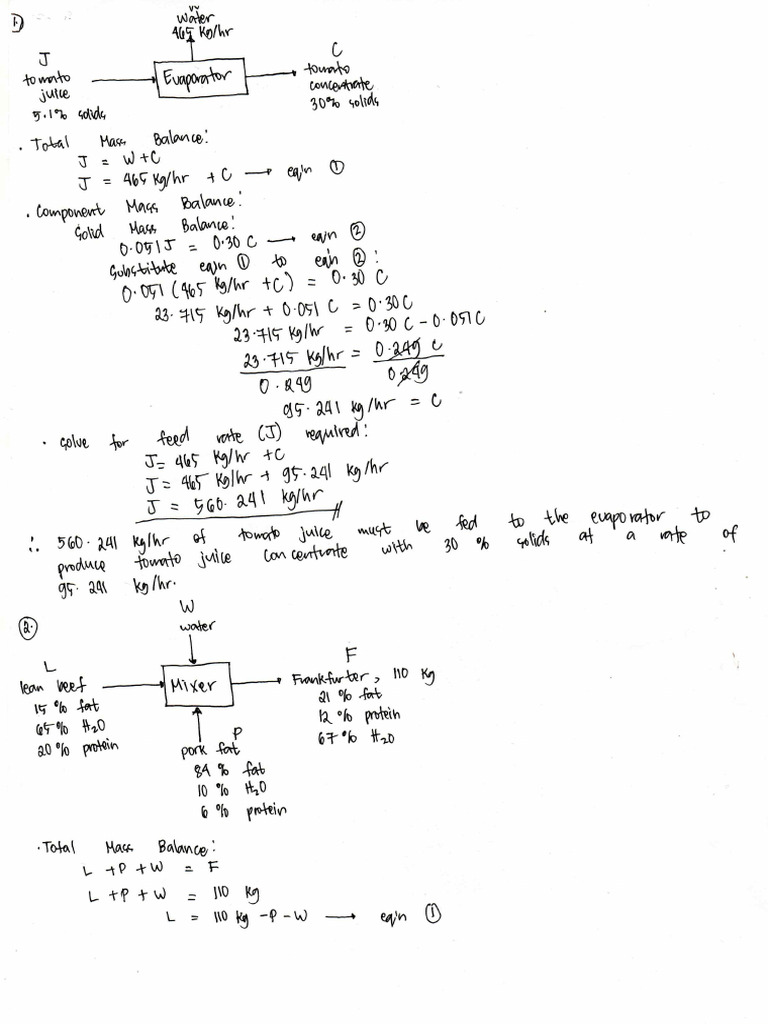 1)
W
water
465 Kg/hr
J
tomato
juice
5.1% solids
Evaporator
C
tomato
concentrate
30% solids
• Total Mass Balance:
J = W + C
J = 465 Kg/hr + C → eq'n ①
• Component Mass Balance:
Solid Mass Balance:
0.051 J = 0.30 C → eq'n ②
Substitute eq'n ① to eq'n ②:
0.051 (465 Kg/hr + C) = 0.30 C
23.715 Kg/hr + 0.051 C = 0.30 C
23.715 Kg/hr = 0.30 C - 0.051 C
23.715 Kg/hr = 0.249 C
0.249 0.249
95.241 kg/hr = C
• Solve for feed rate (J) required:
J = 465 Kg/hr + C
J = 465 Kg/hr + 95.241 kg/hr
J = 560.241 kg/hr //
∴ 560.241 kg/hr of tomato juice must be fed to the evaporator to
produce tomato juice concentrate with 30 % solids at a rate of
95.241 kg/hr.
2.
W
water
L
lean beef
15 % fat
65 % H₂O
20 % protein
Mixer
F
Frankfurter, 110 Kg
21 % fat
12 % protein
67 % H₂O
P
pork fat
84 % fat
10 % H₂O
6 % protein
• Total Mass Balance:
L + P + W = F
L + P + W = 110 Kg
L = 110 Kg - P - W → eq'n ①